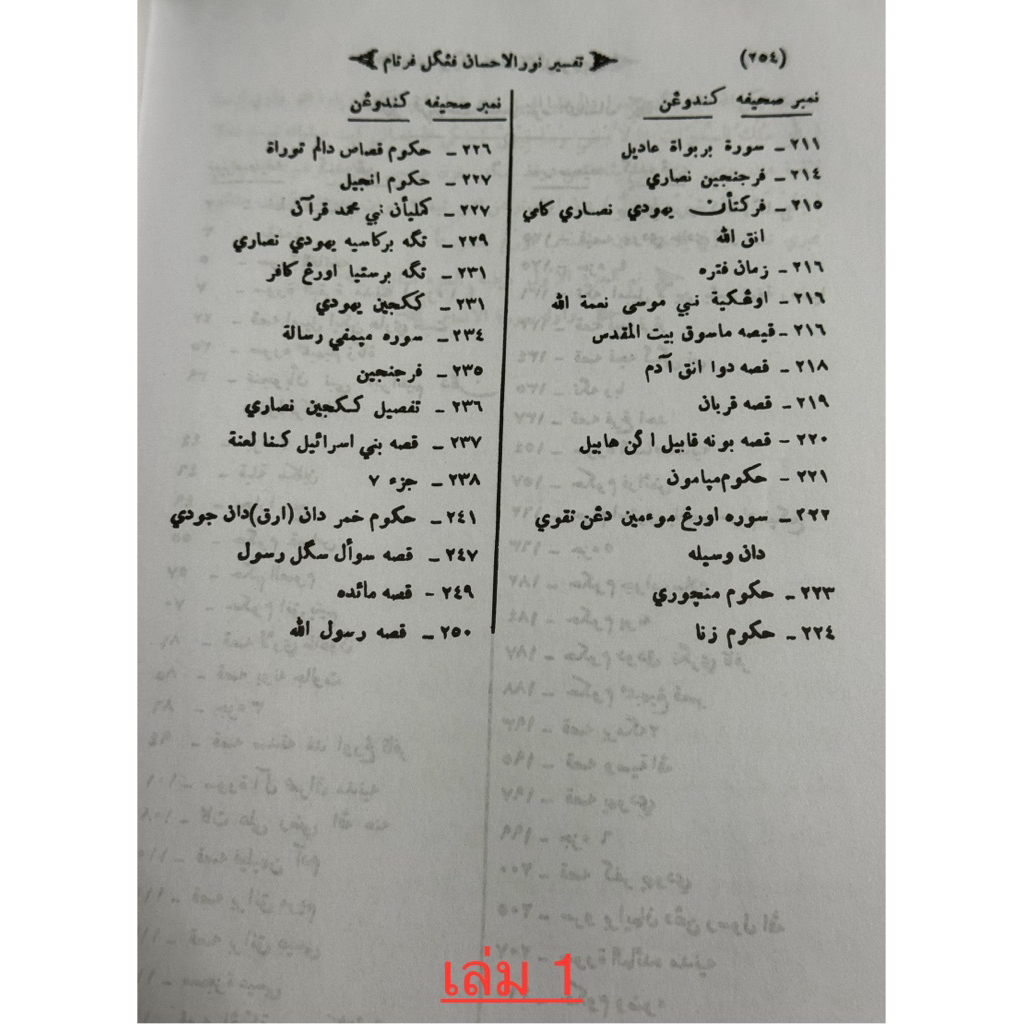 (٢٥٤)
تفسير نورالاحسان فڠݢل فرتام
نمبر صحيفه كندوڠن
٢١١ - سورة بربواة عاديل
٢١٤ - فرجنجين نصاري
٢١٥ - فركتأن يهودي نصاري كامي
انق الله
٢١٦ - زمان فتره
٢١٦ - اوڠكڤية نبي موسى نعمة الله
٢١٦ - قيصه ماسوق بيت المقدس
٢١٨ - قصه دوا انق آدم
٢١٩ - قصه قربان
٢٢٠ - قصه بونه قابيل اكن هابيل
٢٢١ - حكوم مڽامون
٢٢٢ - سوره اورڠ موءمين دڠن تقوي
دان وسيله
٢٢٣ - حكوم منچوري
٢٢٤ - حكوم زنا
نمبر صحيفه كندوڠن
٢٢٦ - حكوم قصاص دالم توراة
٢٢٧ - حكوم انجيل
٢٢٧ - كملياٴن نبي محمد قرآن
٢٢٩ - تگه بركاسيه يهودي نصاري
٢٣١ - تگه برستيا اورڠ كافر
٢٣١ - ككجين يهودي
٢٣٤ - سوره ميمفي رسالة
٢٣٥ - فرجنجين
٢٣٦ - تفصيل ككجين نصاري
٢٣٧ - قصه بني اسرائيل كنا لعنة
٢٣٨ - جزء ٧
٢٤١ - حكوم خمر دان (ارق) دان جودي
٢٤٧ - قصه سوأل سگل رسول
٢٤٩ - قصه مائده
٢٥٠ - قصه رسول الله
เล่ม 1